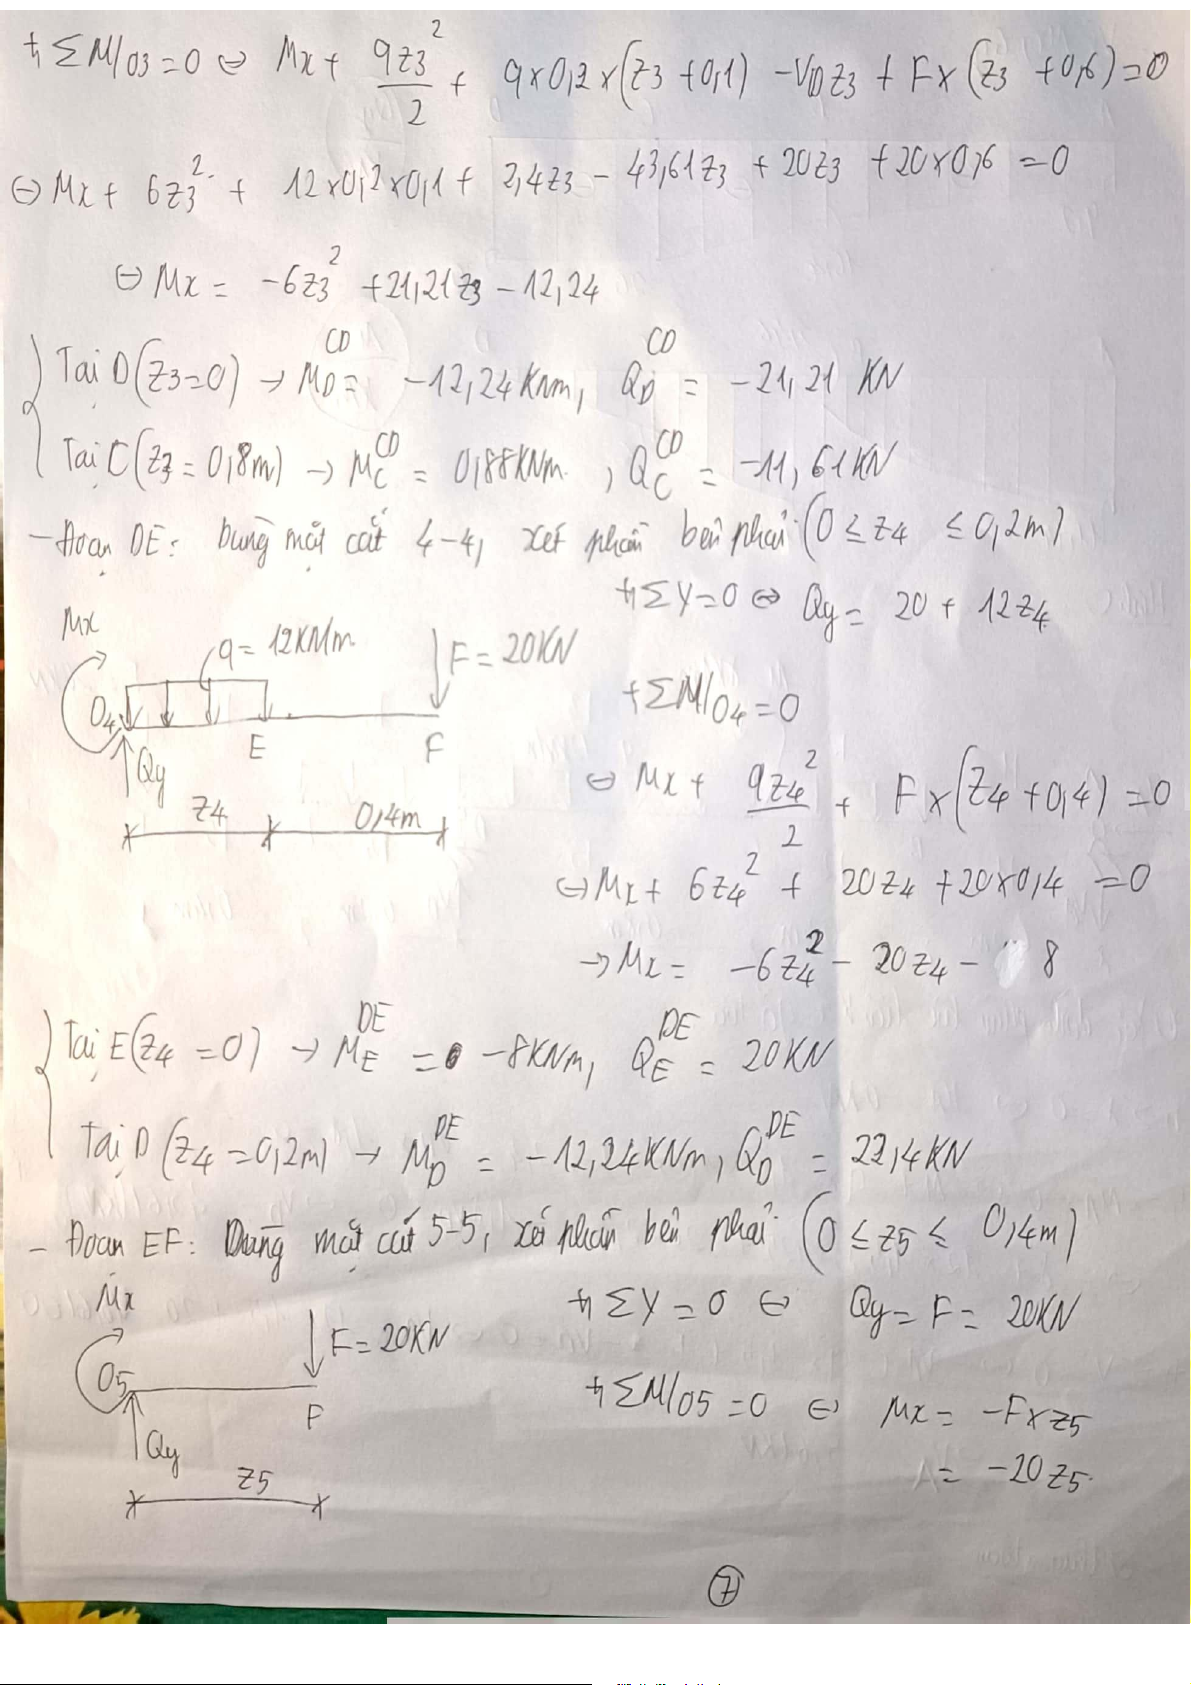 + ΣM/O3 = 0 ⇔ Mx + qz3²/2 + q×0,2×(z3 + 0,1) - VDz3 + F×(z3 + 0,6) = 0
⇔ Mx + 6z3² + 12×0,2×0,1 + 2,4z3 - 43,61z3 + 20z3 + 20×0,6 = 0
⇔ Mx = -6z3² + 21,21z3 - 12,24
Tại D(z3=0) → M_D^CD = -12,24 KNm, Q_D^CD = -21,21 KN
Tại C(z3 = 0,8m) → M_C^CD = 0,88KNm, Q_C^CD = -11,61KN
- Đoạn DE: Dùng mặt cắt 4-4, xét phần bên phải (0 ≤ z4 ≤ 0,2m)
+ ΣY=0 ⇔ Qy = 20 + 12z4
Mx
q = 12KN/m
F = 20KN
O4
E
F
Qy
z4
0,4m
+ ΣM/O4 = 0
⇔ Mx + qz4²/2 + F×(z4 + 0,4) = 0
⇔ Mx + 6z4² + 20z4 + 20×0,4 = 0
→ Mx = -6z4² - 20z4 - 8
Tại E(z4 = 0) → M_E^DE = -8KNm, Q_E^DE = 20KN
Tại D(z4 = 0,2m) → M_D^DE = -12,24KNm, Q_D^DE = 22,4KN
- Đoạn EF: Dùng mặt cắt 5-5, xét phần bên phải (0 ≤ z5 ≤ 0,4m)
Mx
F = 20KN
O5
F
Qy
z5
+ ΣY = 0 ⇔ Qy = F = 20KN
+ ΣM/O5 = 0 ⇔ Mx = -F×z5
= -20z5
7